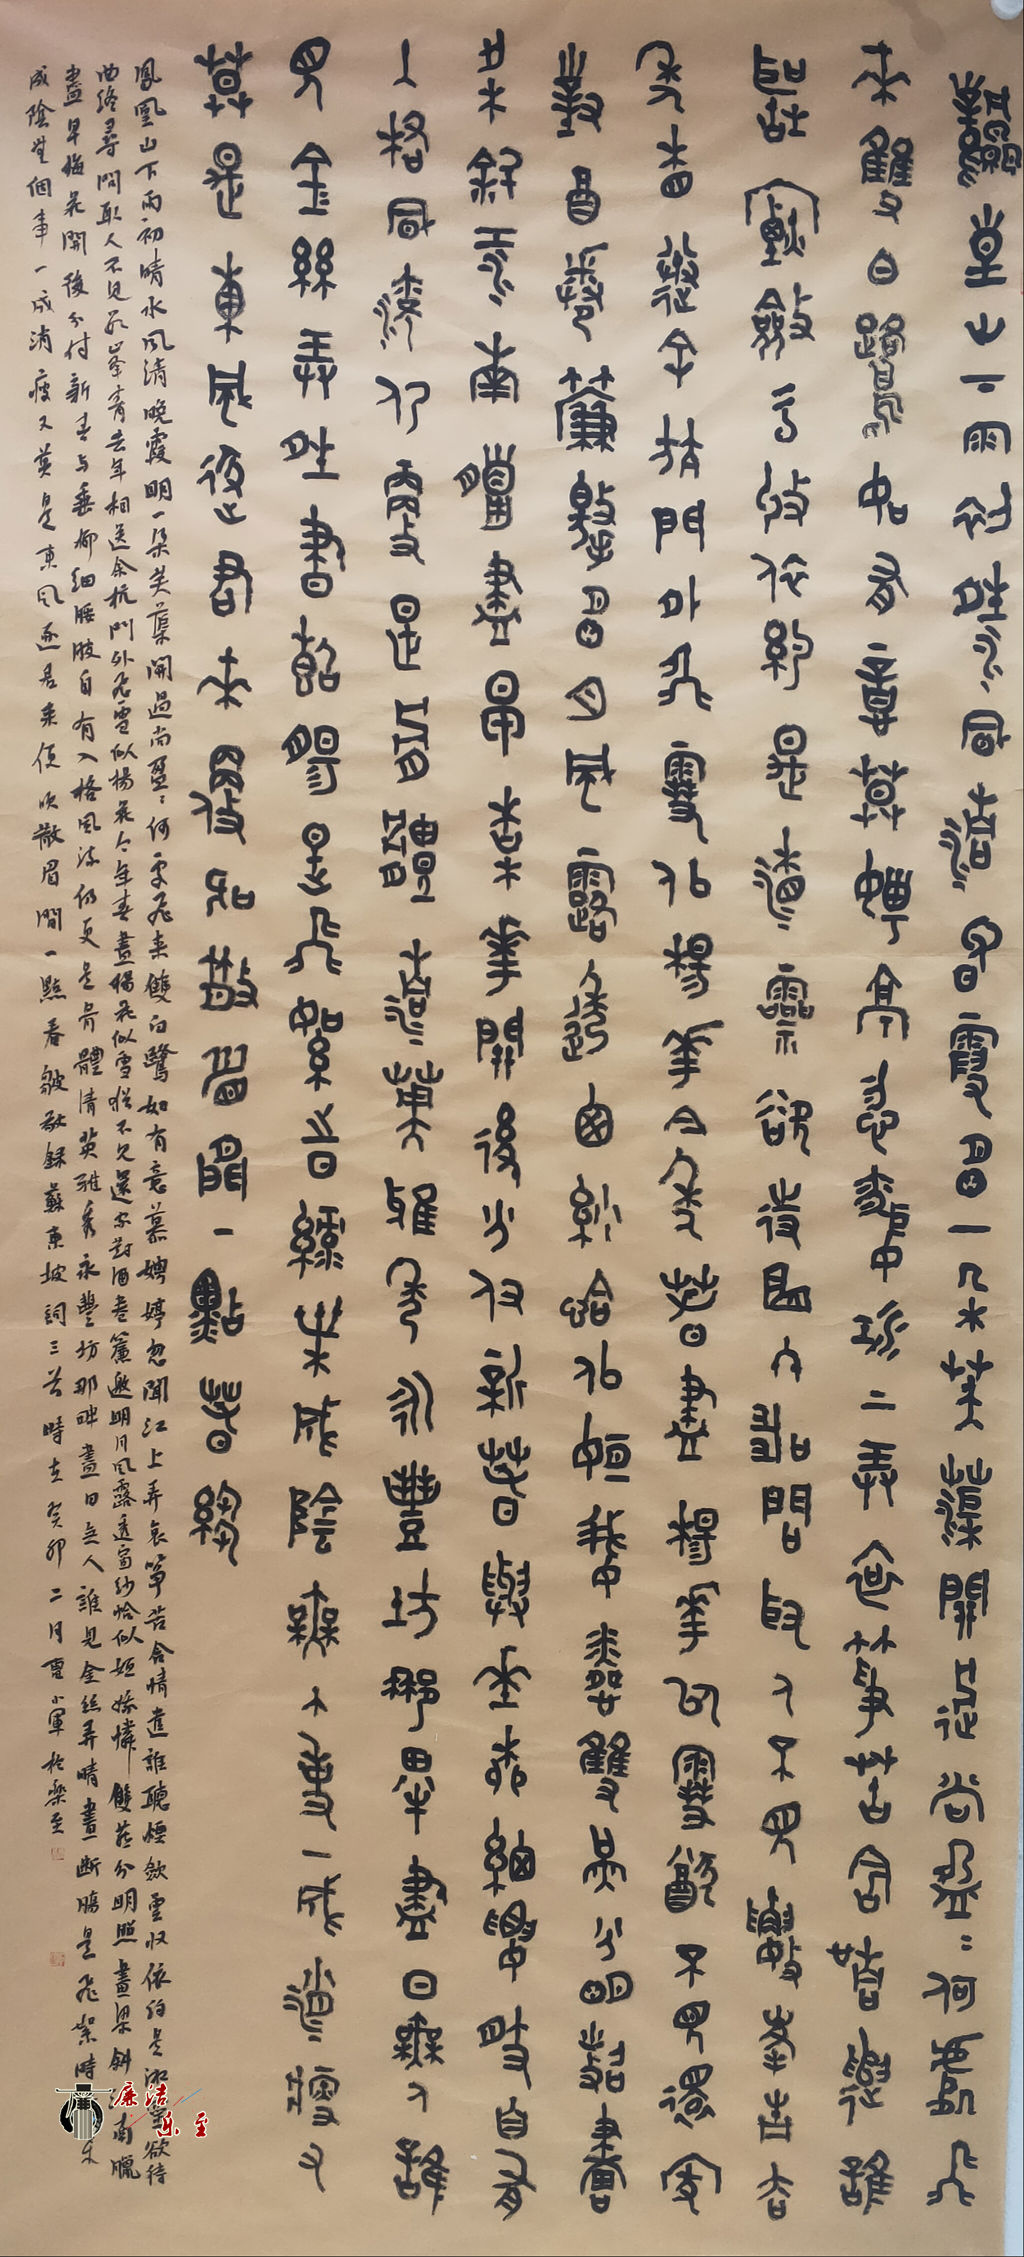 鳳凰山下雨初晴水風清晚霞明一朵芙蕖開過尚盈〻何處飛
來雙白鷺如有意慕娉婷忽聞江上弄哀箏苦含情遣誰
聽煙斂雲收依約是湘靈欲待曲終尋問取人不見數峰青去
年相送余杭門外飛雪似楊花今年春盡楊花似雪猶不見還家
對酒卷簾邀明月風露透窗紗恰似姮娥憐雙燕分明照畫
梁斜江南臘盡早梅花開後分付新春與垂柳細腰肢自有
入格風流仍更是骨體清英雅秀永豐坊那畔盡日無人誰
見金絲弄晴晝斷腸是飛絮時綠葉成陰無個事一成消瘦又
莫是東風逐君來便吹散眉間一點春皺
鳳凰山下雨初晴水風清晚霞明一朵芙蕖開過尚盈〻何處飛來雙白鷺如有意慕娉婷忽聞江上弄哀箏苦含情遣誰聽煙斂雲收依約是湘靈欲待
曲終尋問取人不見數峰青去年相送余杭門外飛雪似楊花今年春盡楊花似雪猶不見還家對酒卷簾邀明月風露透窗紗恰似姮娥憐雙燕分明照畫梁斜江南臘
盡早梅花開後分付新春與垂柳細腰肢自有入格風流仍更是骨體清英雅秀永豐坊那畔盡日無人誰見金絲弄晴晝斷腸是飛絮時
成陰無個事一成消瘦又莫是東風逐君來便吹散眉間一點春皺敬録蘇東坡詞三首時在癸卯二月曹小軍於樂至
廉洁
乐至